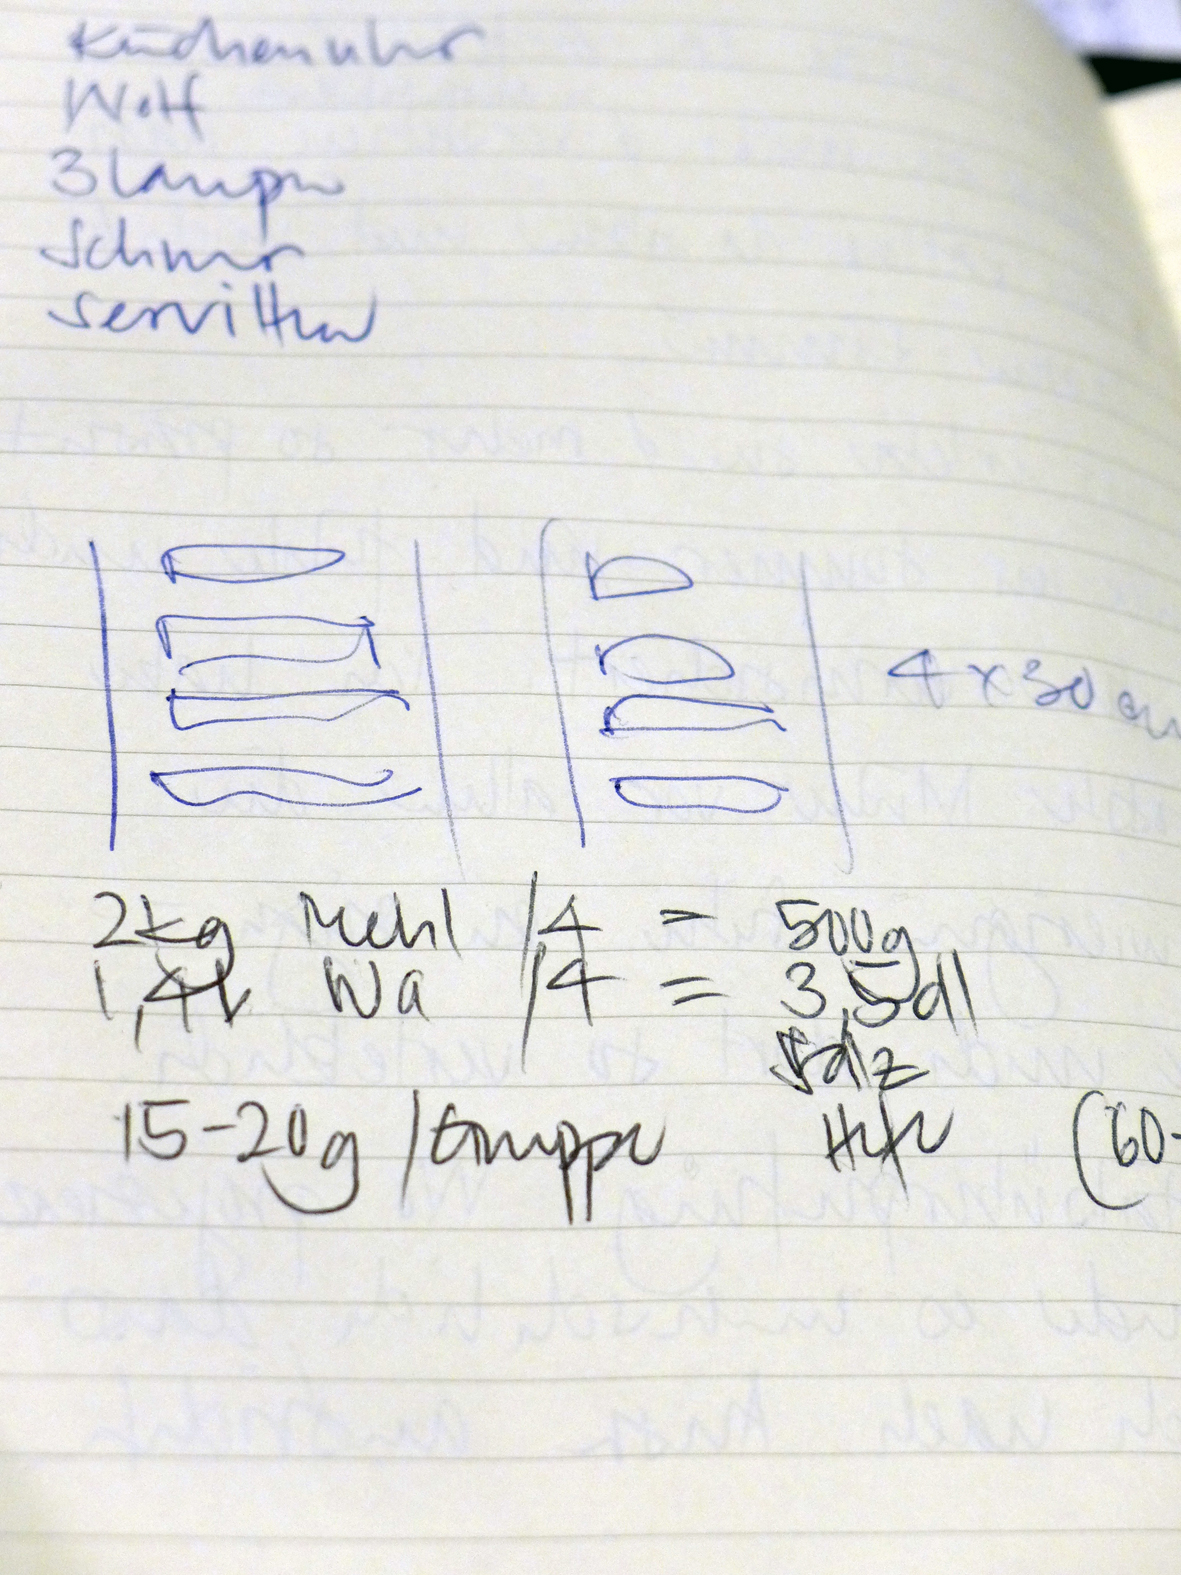 Küchenuhr
Wolf
3 Lampen
Schnur
Servietten
4 x 30 cm
2kg Mehl /4 = 500g
1,4l Wa /4 = 3,5dl
Salz
15-20g /Gruppe Hefe (60-